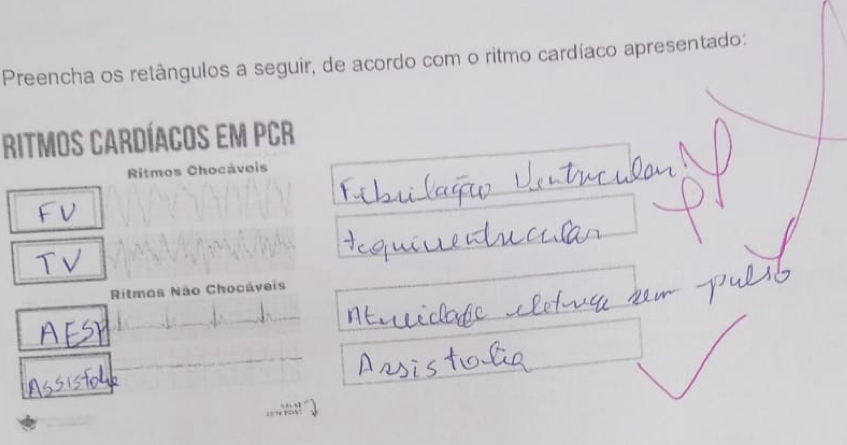 Preencha os retângulos a seguir, de acordo com o ritmo cardíaco apresentado:
RITMOS CARDÍACOS EM PCR
Ritmos Chocáveis
FV
Fibrilação Ventricular
TV
taquiventricular
Ritmos Não Chocáveis
AESP
Atividade eletrica sem pulso
Assistolia
Assistolia